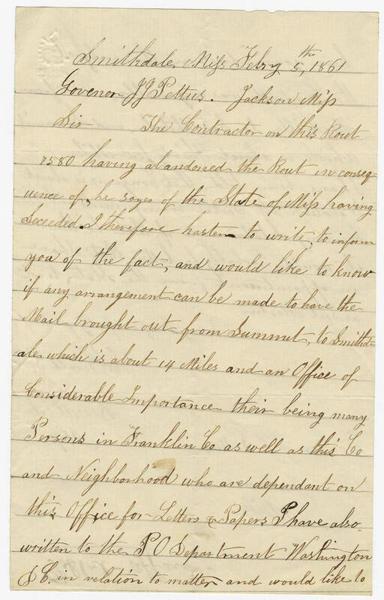 Smithdale, Miss Febry 5th, 1861
Govenor JJ Pettus. Jackson Miss
Sir The Contractor on this Rout
8580 having abandoned the Rout in conseq
uence of, he says of the State of Miss having
Seceeded I therefore hasten to write, to inform
you of the fact, and would like to know
if any arrangement can be made to have the
Mail brought out from Summit, to Smithd-
ale, which is about 14 Miles and an Office of
Considerable Importance their being many
Persons in Franklin Co as well as this Co
and Neighborhood who are dependant on
this Office for Letters & Papers I have also
written to the P O Department Washington
D C. in relation to matter and would like to